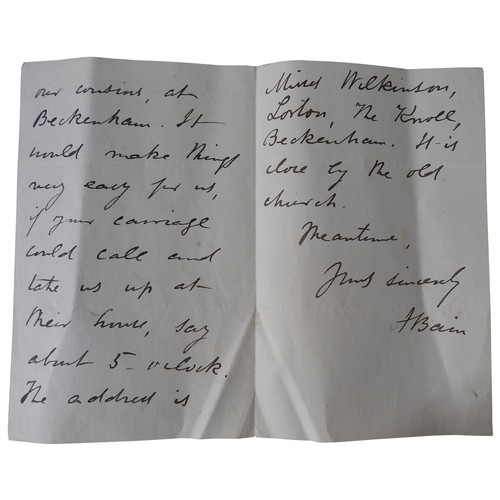 our cousins, at
Beckenham. It
would make things
very easy for us,
if your carriage
could call and
take us up at
their house, say
about 5 o'clock.
The address is
Misses Wilkinson,
Lorton, The Knoll,
Beckenham. It is
close by the old
church.
Meantime,
Yours sincerely
ABain